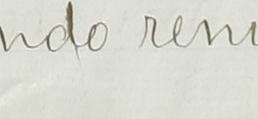 ndo rem